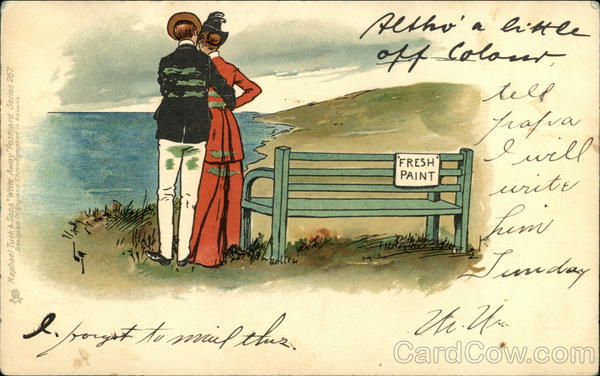 Altho' a little
off Colour,
tell
papa
I will
write
him
Sunday
FRESH
PAINT
I forgot to mail this.
Raphael Tuck & Sons' "Write Away" Postcard Series 267.
CardCow.com